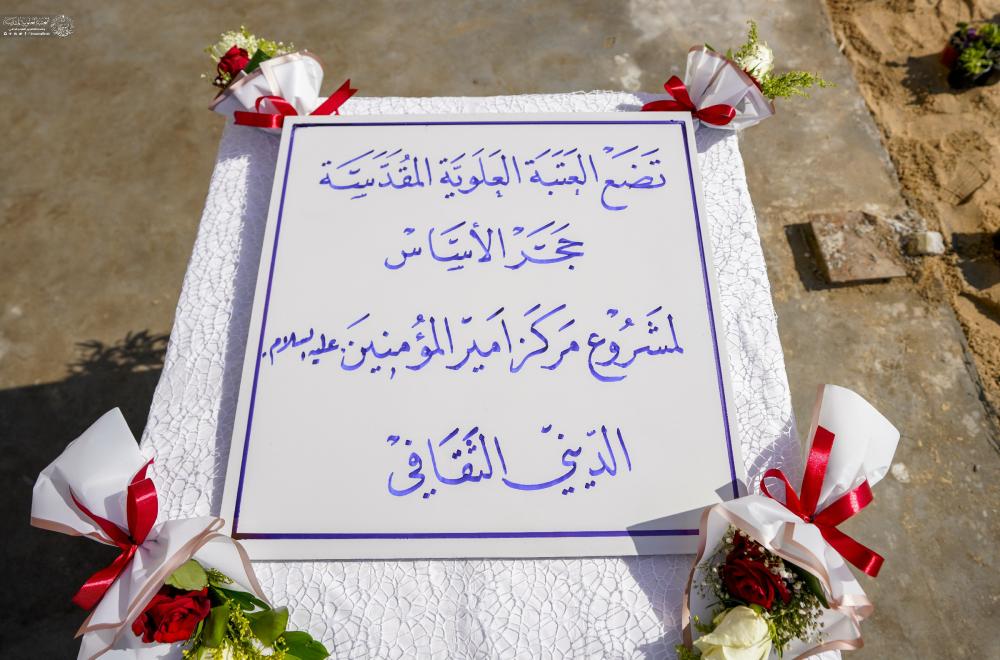 تَضَعُ العَتَبَة العَلَويَّة المُقَدَّسَة
حَجَرَ الأسَاس
لمَشرُوع مَركَز امَير المؤمنينَ عليه السلام
الدّينيّ الثَقَافيْ